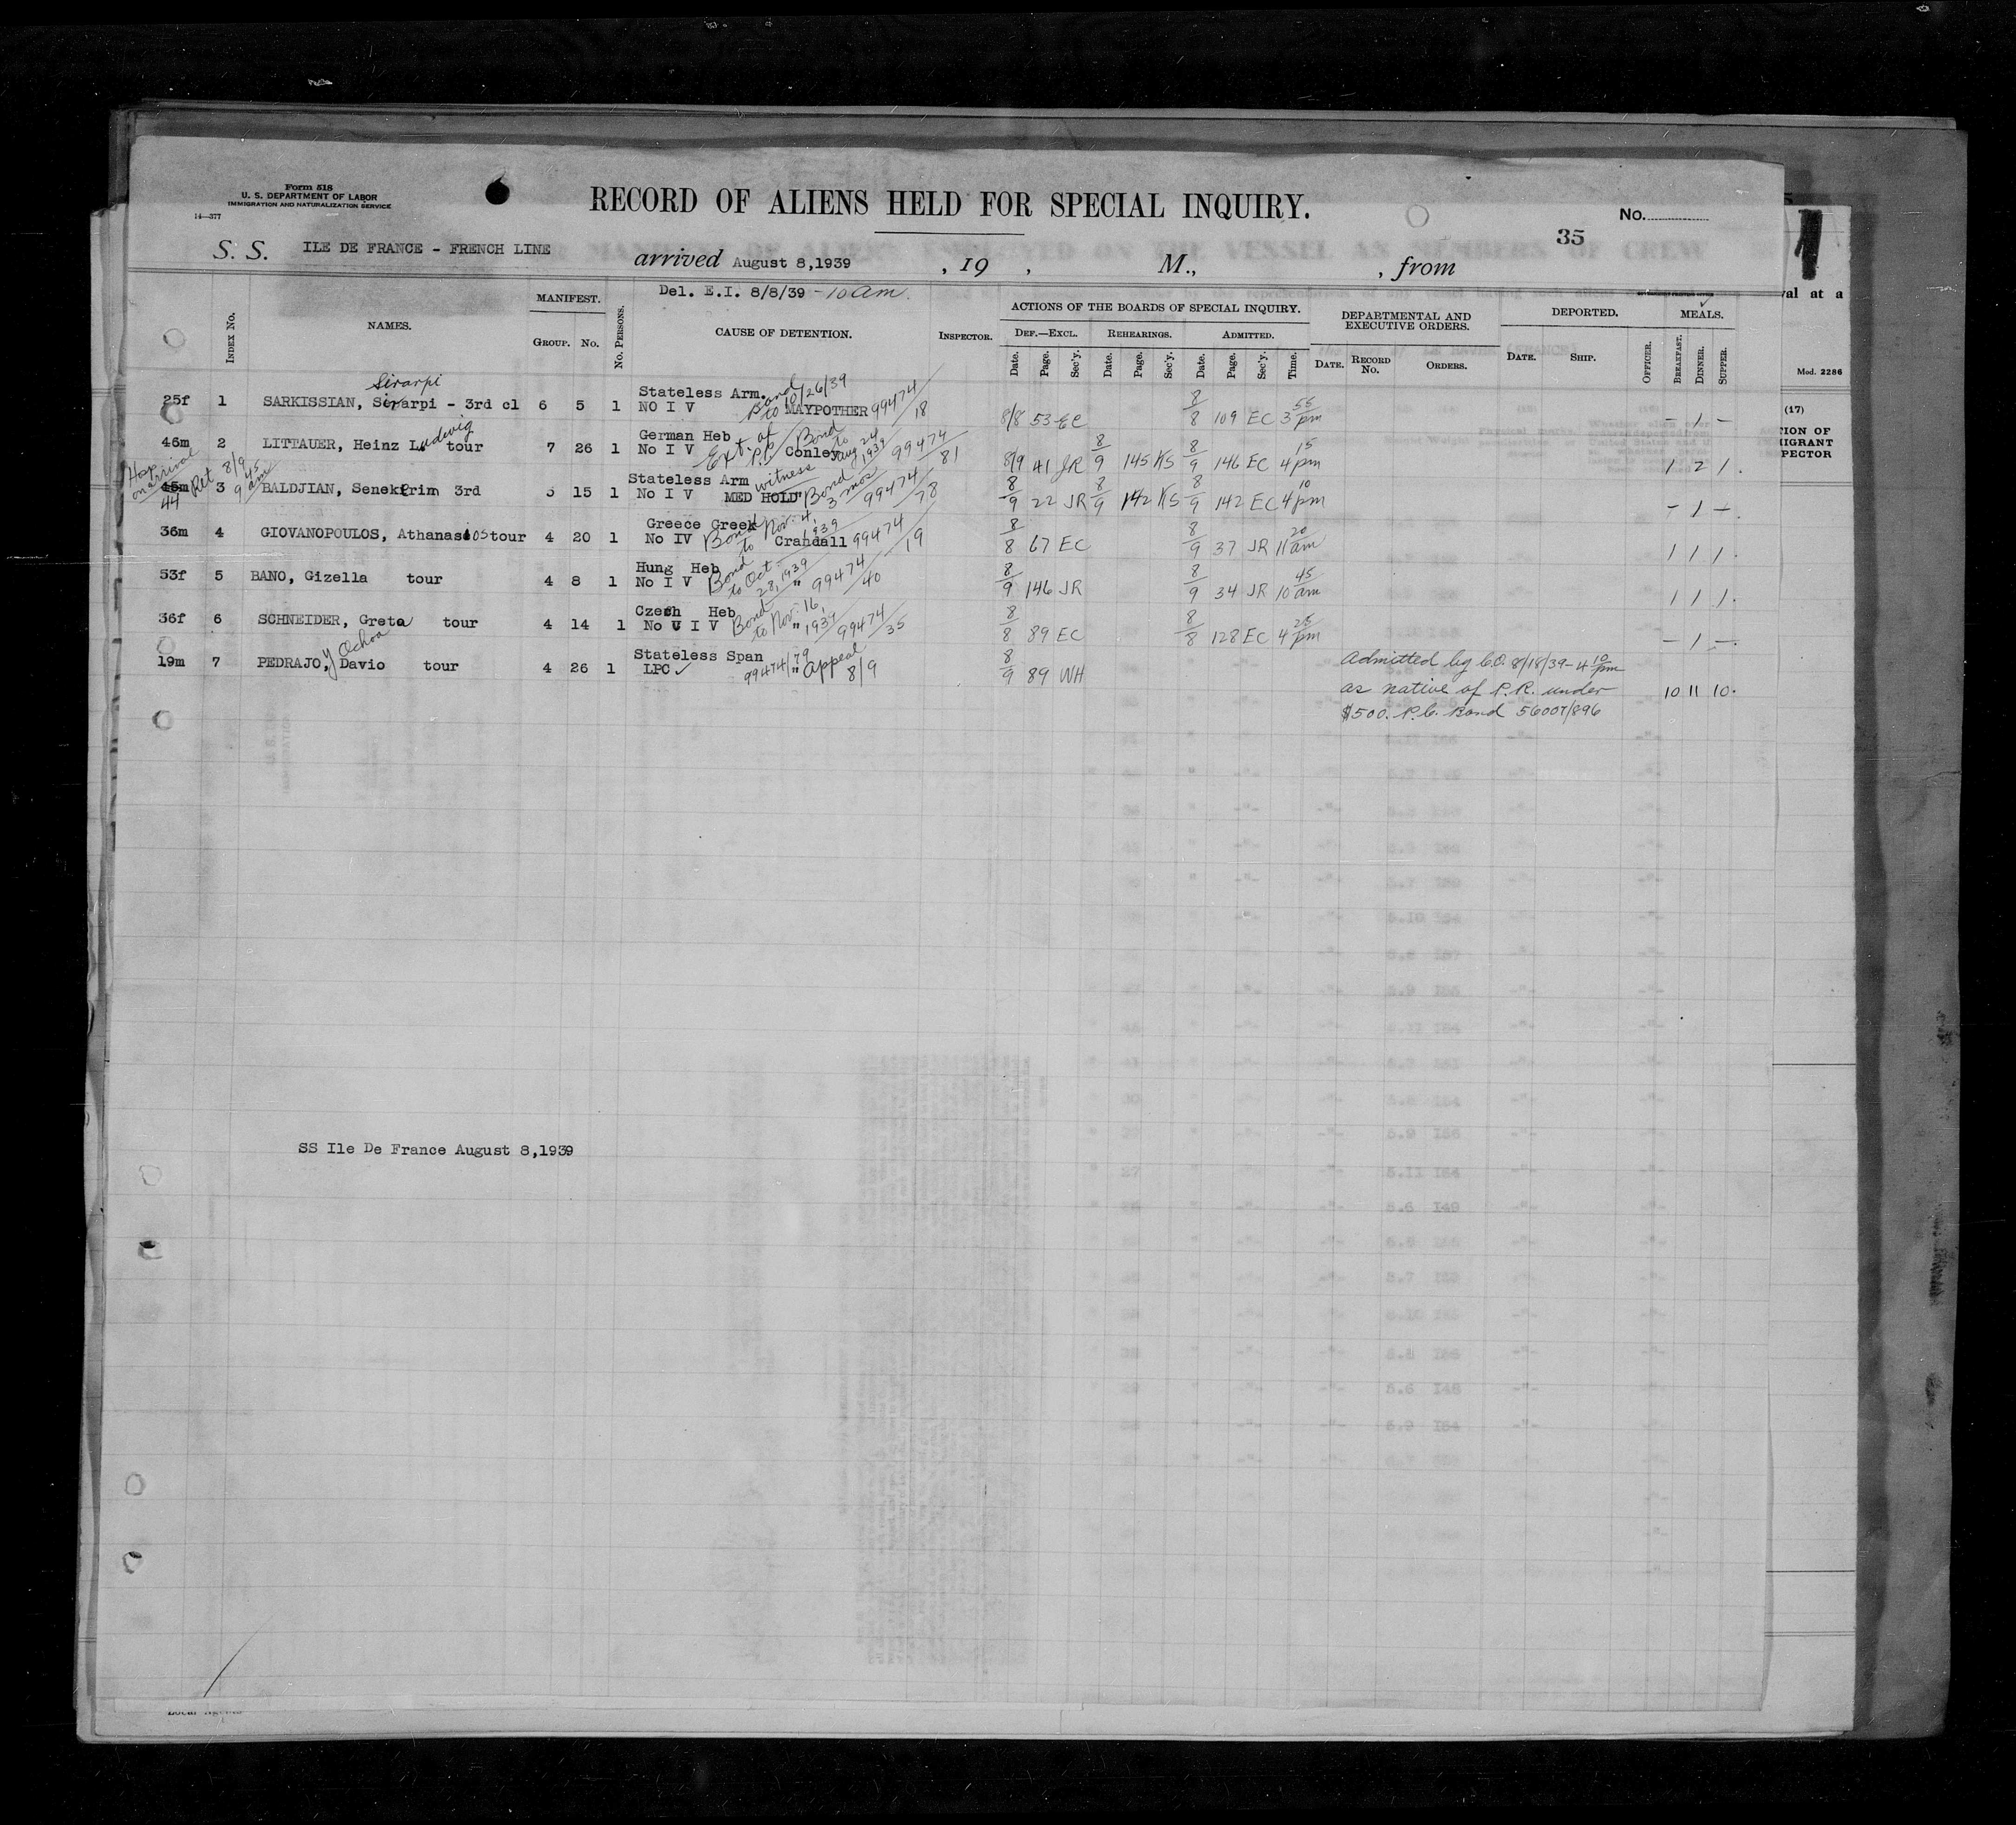 Form 518
U. S. DEPARTMENT OF LABOR
IMMIGRATION AND NATURALIZATION SERVICE
14—377
RECORD OF ALIENS HELD FOR SPECIAL INQUIRY.
No.
35
S. S. ILE DE FRANCE - FRENCH LINE arrived August 8,1939 , 19 , M., , from
Del. E.I. 8/8/39 - 10 am.
INDEX No. NAMES. MANIFEST. GROUP. No. No. PERSONS. CAUSE OF DETENTION. INSPECTOR. ACTIONS OF THE BOARDS OF SPECIAL INQUIRY. DEF.—EXCL. REHEARINGS. ADMITTED. DEPARTMENTAL AND EXECUTIVE ORDERS. DEPORTED. MEALS.
Date. Page. Sec'y. Date. Page. Sec'y. Date. Page. Sec'y. Time. DATE. RECORD No. ORDERS. DATE. SHIP. OFFICER. BREAKFAST. DINNER. SUPPER.
Sirarpi
Stateless Arm. Bond to 10/26/39
25f 1 SARKISSIAN, Sirarpi - 3rd cl 6 5 1 NO I V MAYPOTHER 99474/18 8/8 53 EC 8/8 109 EC 3 55 pm - 1 -
German Heb Ext. of P.P. Bond to Aug 24 1939
46m 2 LITTAUER, Heinz Ludwig tour 7 26 1 No I V Conley 99474/81 8/9 41 JR 8/9 145 KS 8/9 146 EC 4 15 pm 1 2 1.
Hosp on arrival Ret 8/9 9 45 am
Stateless Arm witness Bond 3 mos
45m 44 3 BALDJIAN, Senekerim 3rd 5 15 1 No I V MED HOLD" 99474/78 8/9 22 JR 8/9 142 KS 8/9 142 EC 4 10 pm - 1 -.
Greece Greek Bond to Nov. 4, 1939
36m 4 GIOVANOPOULOS, Athanasios tour 4 20 1 No IV Crandall 99474/19 8/8 67 EC 8/9 37 JR 11 20 am 1 1 1.
Hung Heb Bond to Oct 28, 1939
53f 5 BANO, Gizella tour 4 8 1 No I V " 99474/40 8/9 146 JR 8/9 34 JR 10 45 am 1 1 1.
Czech Heb Bond to Nov. 16, 1939
36f 6 SCHNEIDER, Greta tour 4 14 1 No I V " 99474/35 8/8 89 EC 8/8 128 EC 4 25 pm - 1 -.
y Ochoa
Stateless Span
19m 7 PEDRAJO, Davio tour 4 26 1 LPC 99474/79 " Appeal 8/9 8/9 89 WH
Admitted by C.O. 8/18/39 - 4 10 pm
as native of P.R. under 10 11 10.
$500. P.C. Bond 56007/896
SS Ile De France August 8,1939
val at a
Mod. 2286
(17)
TION OF
IGRANT
PECTOR